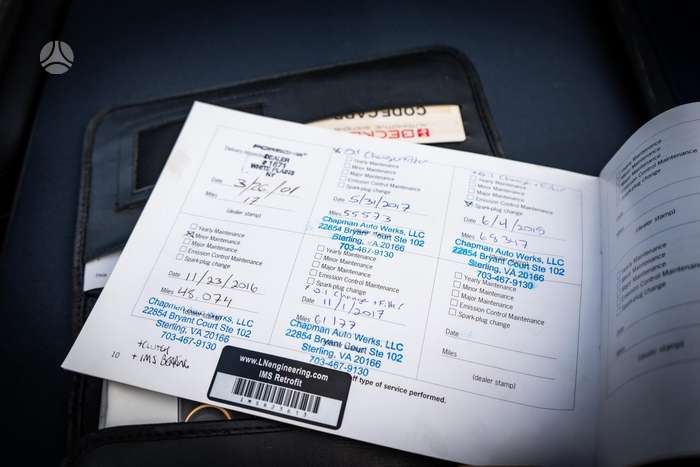 CODECARD
BECKER
PORSCHE
Delivery
DEALER
# 1671
WHITE PLAINS
NY
Date 3/26/01
Miles 17
(dealer stamp)
Oil Change + Filter
Yearly Maintenance
Minor Maintenance
Major Maintenance
Emission Control Maintenance
Spark-plug change
Date 5/31/2017
Miles 55573
Chapman Auto Werks, LLC
22854 Bryant Court Ste 102
Sterling, VA 20166
703-467-9130
Yearly Maintenance
Minor Maintenance
Major Maintenance
Emission Control Maintenance
Spark-plug change
Date 6/4/2019
Miles
Chapman Auto Werks, LLC
22854 Bryant Court Ste 102
Sterling, VA 20166
703-467-9130
Yearly Maintenance
Minor Maintenance
Major Maintenance
Emission Control Maintenance
Spark-plug change
Date 11/23/2016
Miles 48,074
Chapman Auto Werks, LLC
22854 Bryant Court Ste 102
Sterling, VA 20166
703-467-9130
+ Clutch
+ IMS BEARING
Yearly Maintenance
Minor Maintenance
Major Maintenance
Emission Control Maintenance
Spark-plug change
Oil Change + Filter
Date 11/1/2017
Miles 61177
Chapman Auto Werks, LLC
22854 Bryant Court Ste 102
Sterling, VA 20166
703-467-9130
Yearly Maintenance
Minor Maintenance
Major Maintenance
Emission Control Maintenance
Spark-plug change
Date
Miles
(dealer stamp)
10
www.LNengineering.com
IMS Retrofit
type of service performed.
Yearly Maintenance
Minor Maintenance
Major Maintenance
Emission Control Maintenance
Spark-plug change
Date
Miles
(dealer stamp)
Yearly Maintenance
Minor Maintenance
Major Maintenance
Emission Control Maintenance
Spark-plug change
Date
Miles
(dealer stamp)